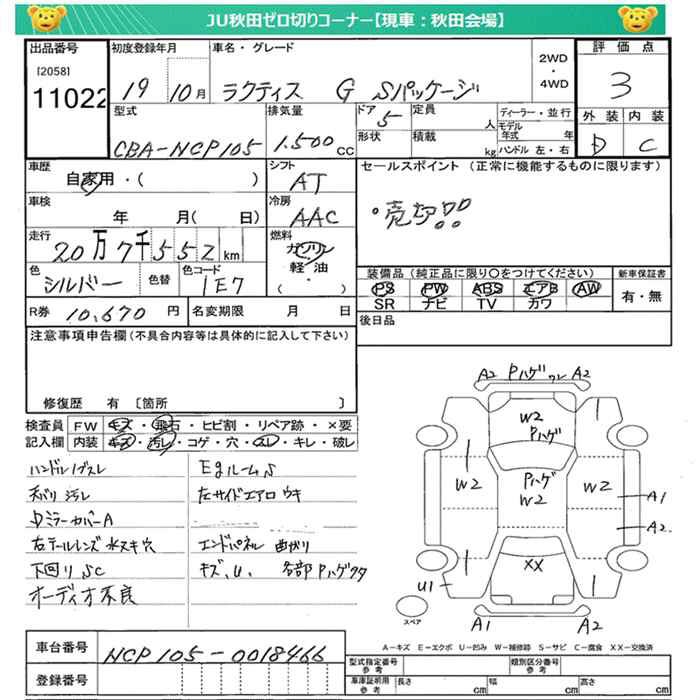 JU秋田ゼロ切りコーナー【現車：秋田会場】
出品番号 初度登録年月 車名・グレード 2WD・4WD 評価点
[2058]
11022 19 10月 ラクティス G Sパッケージ 3
型式 排気量 ドア 定員 ディーラー・並行 外装 内装
CBA-NCP105 1.500cc 5 人 モデル年式 年 D C
形状 積載 kg ハンドル 左・右
車歴 シフト セールスポイント （正常に機能するものに限ります）
自家用・( ) AT
車検 冷房 ・売切!!
年 月( 日) AAC
走行 燃料
20万7千552km ガソリン
色 色替 色コード 軽油 装備品（純正品に限り○をつけてください） 新車保証書
シルバー 1E7 ・( ) PS PW ABS エアB AW 有・無
SR ナビ TV カワ
R券 10,670円 名変期限 月 日 後日品
注意事項申告欄（不具合内容等は具体的に記入して下さい）
修復歴 有 〔箇所 〕
検査員 FW キズ・飛石・ヒビ割・リペア跡・×要
記入欄 内装 キズ・汚レ・コゲ・穴・スレ・キレ・破レ
ハンドル/ブスレ Egルーム S
天バリ 汚レ 左サイドエアロ ウキ
DミラーカバーA
右テールレンズ 水ヌキ穴 エンドパネル 曲がり
下回り SC キズ、U、 各部Pハゲタ
オーディオ不良
A2 Pハゲ ワレ A2
W2
Pハゲ
Pハゲ
W2 W2 W2 A1
A2
XX
U1
A1 A2
スペア
A-キズ E-エクボ U-凹み W-補修跡 S-サビ C-腐食 XX-交換済
車台番号 NCP105-0018466
型式指定番号 参考 類別区分番号 参考
登録番号 車庫証明用 参考 長さ cm 幅 cm 高さ cm